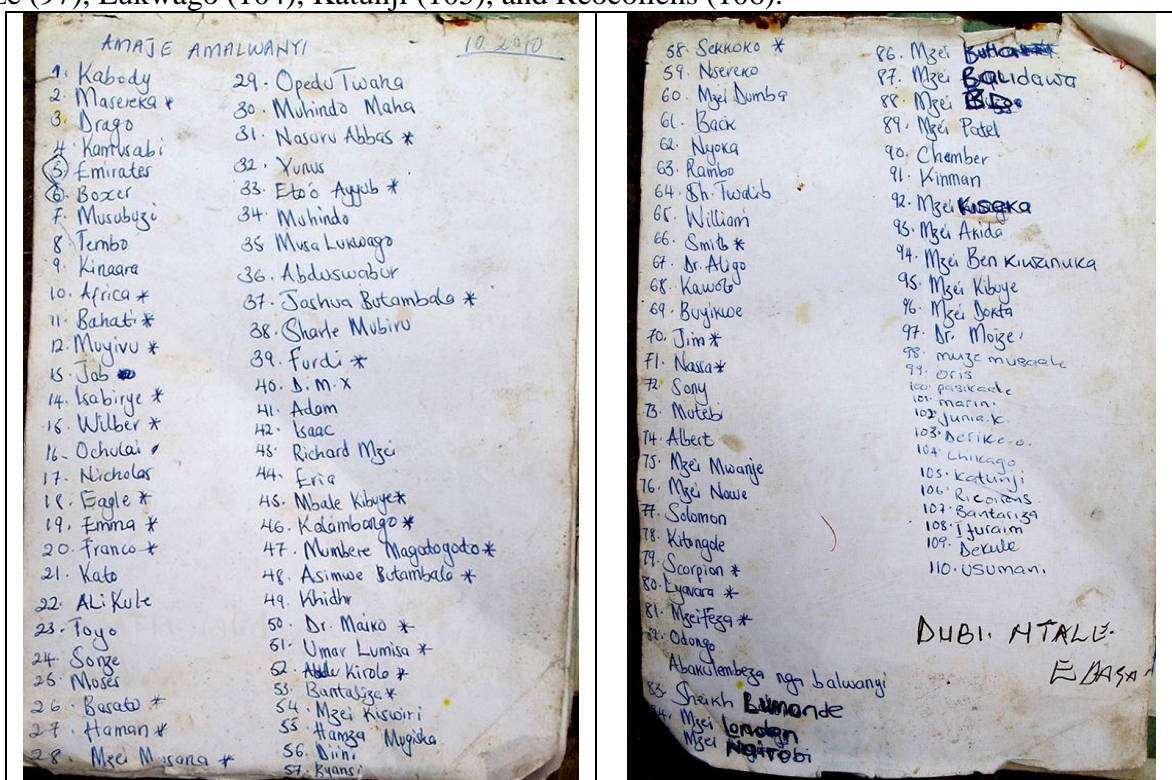 (97), Lukwago (104), Katunji (105), and Reocoliens (106).
AMAJE AMALWANYI 10.2010
1. Kabody
2. Masereka *
3. Drago
4. Kamusabi
5. Emirates
6. Boxer
7. Musubuzi
8. Tembo
9. Kinaara
10. Africa *
11. Bahati *
12. Muyivu *
13. Job
14. Isabirye *
15. Wilber *
16. Ochulai
17. Nicholas
18. Eagle *
19. Emma *
20. Franco *
21. Kato
22. ALi Kule
23. Toyo
24. Songe
25. Moses
26. Barato *
27. Haman *
28. Mzei Musana *
29. Opedu Twaha
30. Muhindo Maha
31. Nasuru Abbas *
32. Yunus
33. Eto'o Ayyub *
34. Muhindo
35 Musa Lukwago
36. Abduswabur
37. Jashua Butambala *
38. Sharle Mubiru
39. Furdi *
40. D.M.X
41. Adam
42. Isaac
43. Richard Mzei
44. Eria
45. Mbale Kibuye *
46. Kalambango *
47. Mumbere Magatogoto *
48. Asimwe Butambala *
49. Khidhr
50. Dr. Maiko *
51. Umar Lumisa *
52. Kirolo *
53. Bantajiza *
54. Mzei Kiswiri
55 Hamza Mugisha
56. Diini
57. Byansi
58. Sekkoko *
59. Nsereko
60. Mzei Dumba
61. Back
62. Nyoka
63. Rambo
64. Sh. Twalib
65. William
66. Smith *
67. Dr. Aligo
68. Kawoto
69. Buyikwe
70. Jim *
71. Nassa *
72. Sony
73. Mutebi
74. Albert
75. Mzei Mwanje
76. Mzei Nowe
77. Solomon
78. Kitongole
79. Scorpion *
80. Lyavara *
81. Mzei Feza *
82. Odongo
Abakulembeza nga balwanyi
83. Sheikh Lumonde
84. Mzei London
Mzei Nairobi
86. Mzei
87. Mzei Balidawa
88. Mzei
89. Mzei Patel
90. Chamber
91. Kinman
92. Mzei Kiseka
93. Mzei Akida
94. Mzei Ben Kiwanuka
95. Mzei Kibuye
96. Mzei Dokta
97. Dr. Moizei
98. muze musaale
99. oris
100. pasikaale
101. marin.
102. Junia.K.
103. Derike.o.
104. Chikago
105. Katunji
106. Ricoiens
107. Bantariza
108. Ifuraim
109. Dekule
110. usumani.
DUBI. MTALE.
EBAGA